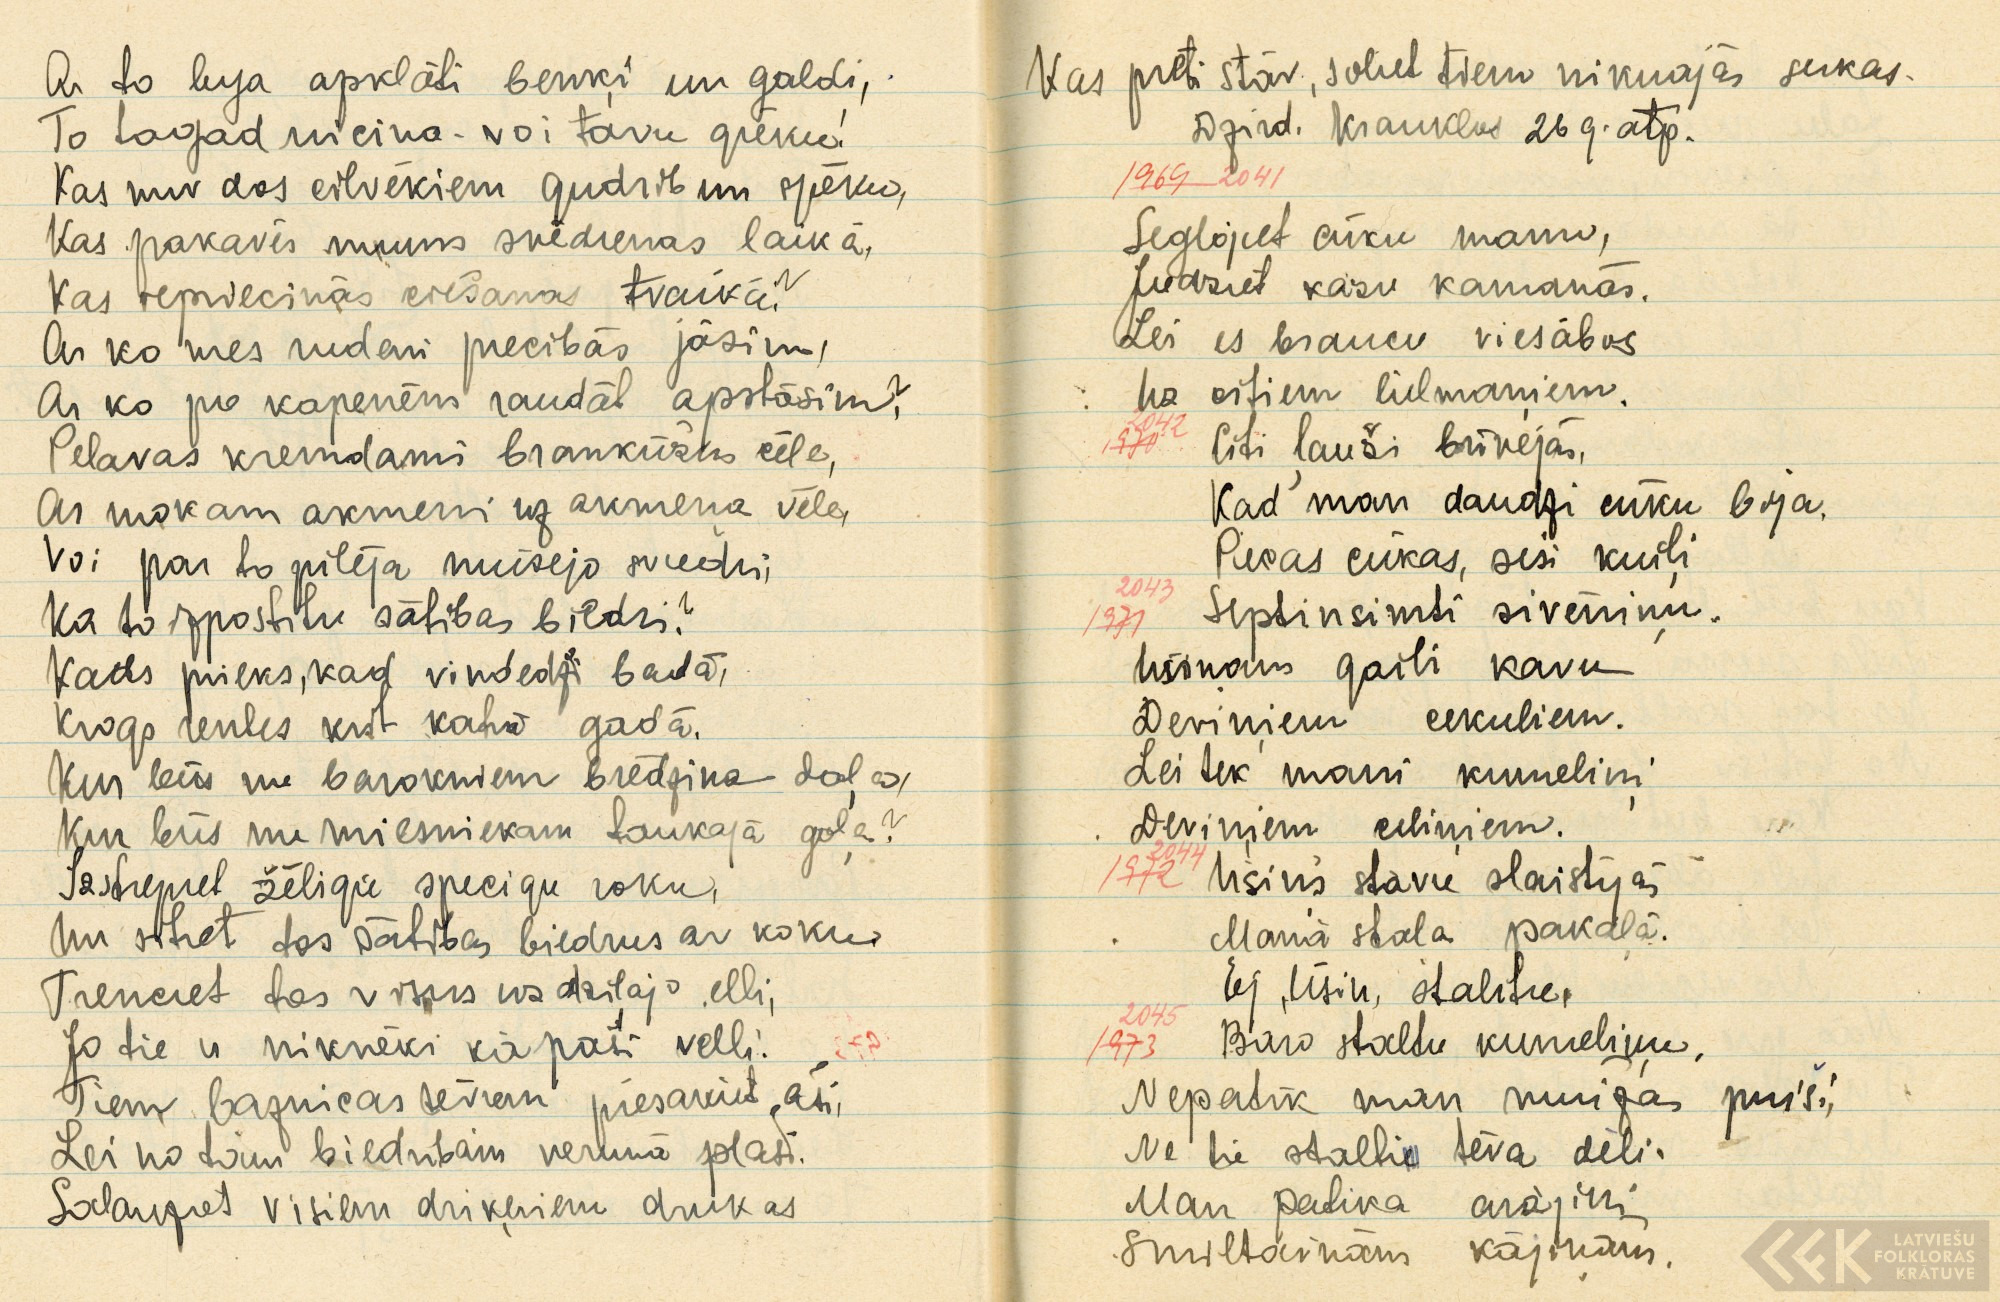 Ar to bija apklāti benķi un galdi,
To tagad nicina - voi tavu grēku!
Kas nu dos cilvēkiem gudrib un spēku,
Kas pakavēs mums svēdienas laikā,
Kas iepriecinās ciešanas tvaikā?
Ar ko mes rudeni precibās jāsim,
Ar ko pie kapenēm raudāt apstāsim?
Pelavas kremdami brankūžus cēle,
Ar mokam akmeni uz akmeņa vēle,
Voi par to pilēja muisejo sviedri,
Ka to izpostitu sātibas biedri?
Kāds prieks, kad vindedži badā,
Krogo rentes krīt katrā gadā.
Kur būs nu barokņiem brēdziņa daļa,
Kur būs nu miesniekam taukajā gaļa?
Izstrepiet žēligu specigu roku,
Un sitiet tos sātibas biedrus ar koku.
Trenciet tos visus uz dzilajo elli,
Jo tie ir niknēki kā paši velli.
Tiem baznicas tēvem piesaviet aši,
Lei no tām biedribām nerunā plaši.
Salauziet visiem driķeriem drukas
Kas preti stāv, sohiet tiem niknajās sukas.
Dzird. Krauklos 26 g. atp.
1969 2041
Seglojiet cūku manu,
Judziet kazu kamanās.
Lei es braucu viesābos
Uz citiem lielmaņiem.
2042
1970 Citi ļauži brīnejās,
Kad man daudzi cūku bija.
Piecas cūkas, seši kuiļi
2043
1971 Septinsimti sivēniņu.
Ūsiņam gaili kavu
Deviņiem cekuliem.
Lei tek mani kumeliņi
Deviņiem celiņiem.
2044
1972 Ūsiņš stavu slaistijās
Manā stala pakaļā.
Ej, Ūsiņ, stalītie,
2045
1973 Baro staltu kumeliņu.
Nepatīk man muižas puiši,
Ne tie staltie tēva dēli.
Man patika arājiņi
Smiltaināms kājiņāms.
LATVIEŠU
FOLKLORAS
KRĀTUVE